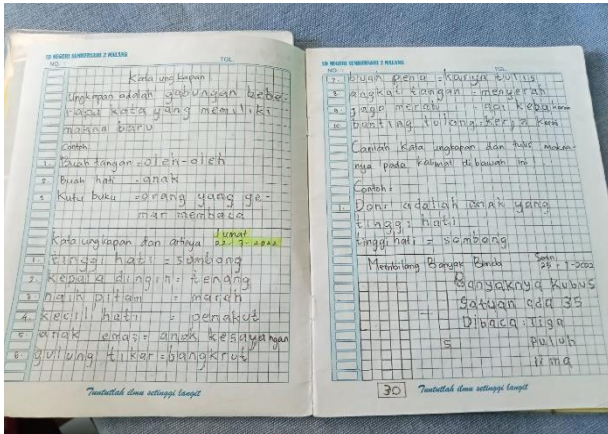 SD NEGERI SUMBERSARI 2 MALANG
NO. TGL.
Kata ungkapan
Ungkapan adalah gabungan bebe-
rapa kata yang memiliki
makna baru
Contoh
1. Buah tangan = oleh-oleh
2. Buah hati = anak
3. Kutu buku = orang yang ge-
mar membaca
Jumat
Kata ungkapan dan artinya 22-7-2022
1. tinggi hati = sombong
2. kepala dingin = tenang
3. naik pitam = marah
4. kecil hati = penakut
5. anak emas = anak kesayangan
6. gulung tikar = bangkrut
Tuntutlah ilmu setinggi langit
SD NEGERI SUMBERSARI 2 MALANG
NO. TGL.
7. buah pena = karya tulis
8. angkat tangan = menyerah
9. jago merah = api kebakaran
10. banting tulang = kerja keras
Carilah kata ungkapan dan tulis makna-
nya pada kalimat dibawah ini
Contoh =
1. Doni adalah anak yang
tinggi hati
tinggi hati = sombong
Membilang Banyak Benda
Senin,
Banyaknya kubus
satuan ada 35
Dibaca: Tiga
puluh
lima
30
Tuntutlah ilmu setinggi langit